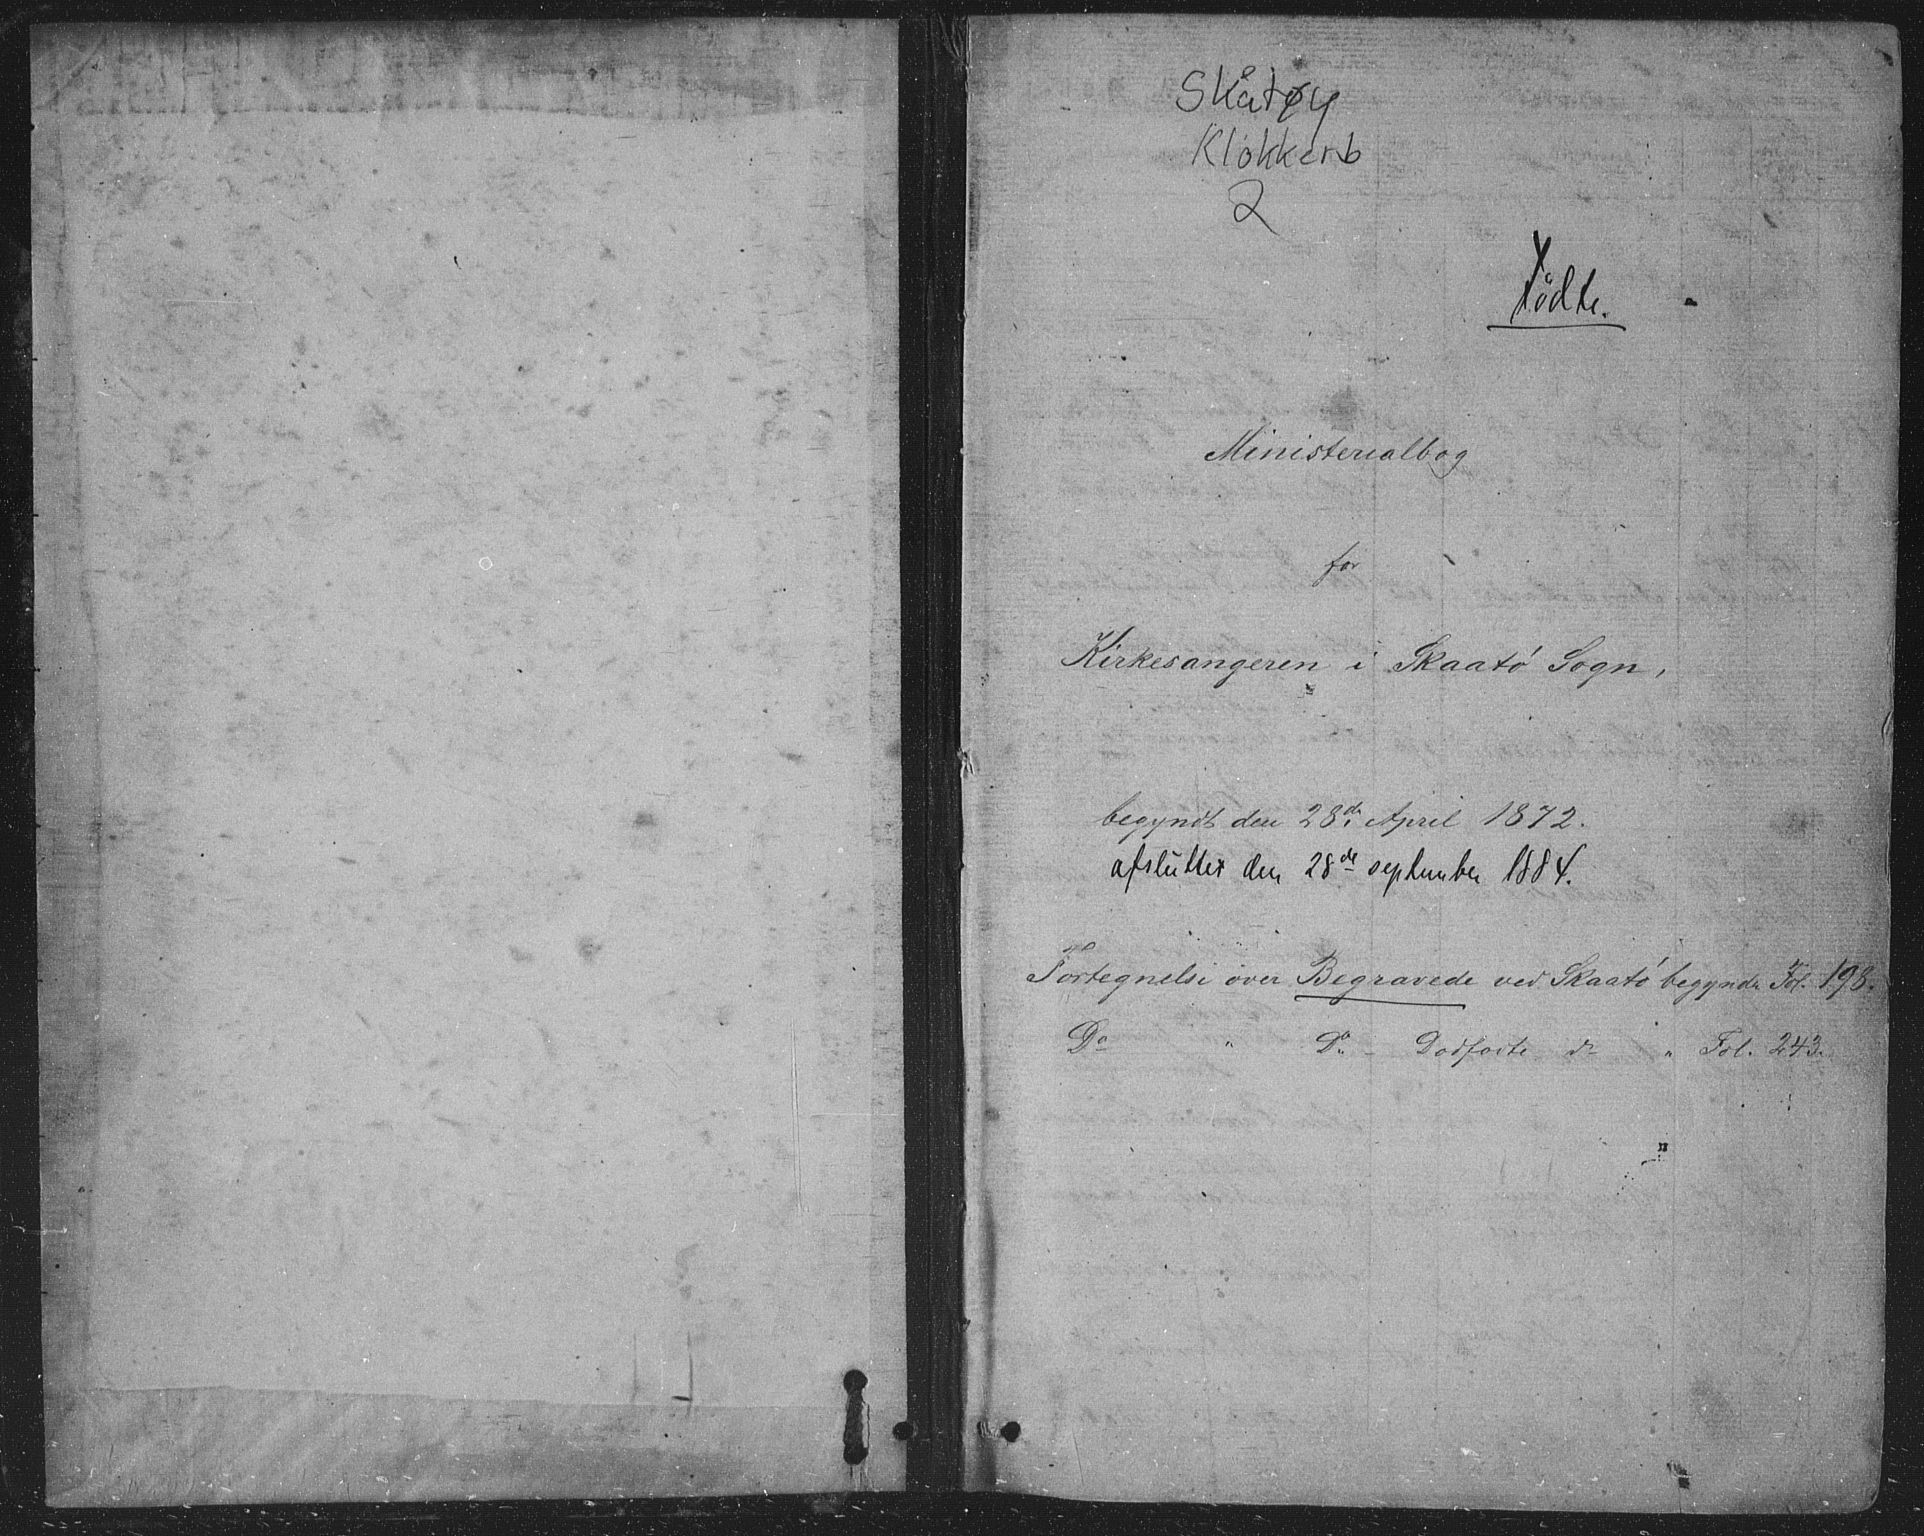 Skåtøy
Klokkerb
2
Fødte.
Ministerialbog
for
Kirkesangeren i Skaatö Sogn,
begyndt den 28de April 1872.
afsluttet den 28de september 1884.
Fortegnelse over Begravede ved Skaatö begynder Fol. 198.
Do " Do - Dødfødte do " Fol. 243.